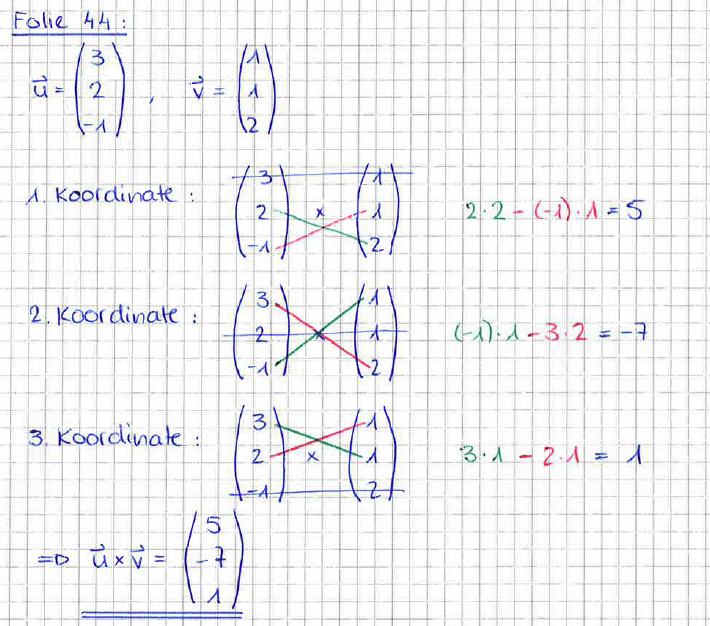 Folie 44:
u⃗ = (3 2 -1) , v⃗ = (1 1 2)
1. Koordinate: (3 2 -1) × (1 1 2) 2·2 - (-1)·1 = 5
2. Koordinate: (3 2 -1) × (1 1 2) (-1)·1 - 3·2 = -7
3. Koordinate: (3 2 -1) × (1 1 2) 3·1 - 2·1 = 1
⇒ u⃗ × v⃗ = (5 -7 1)